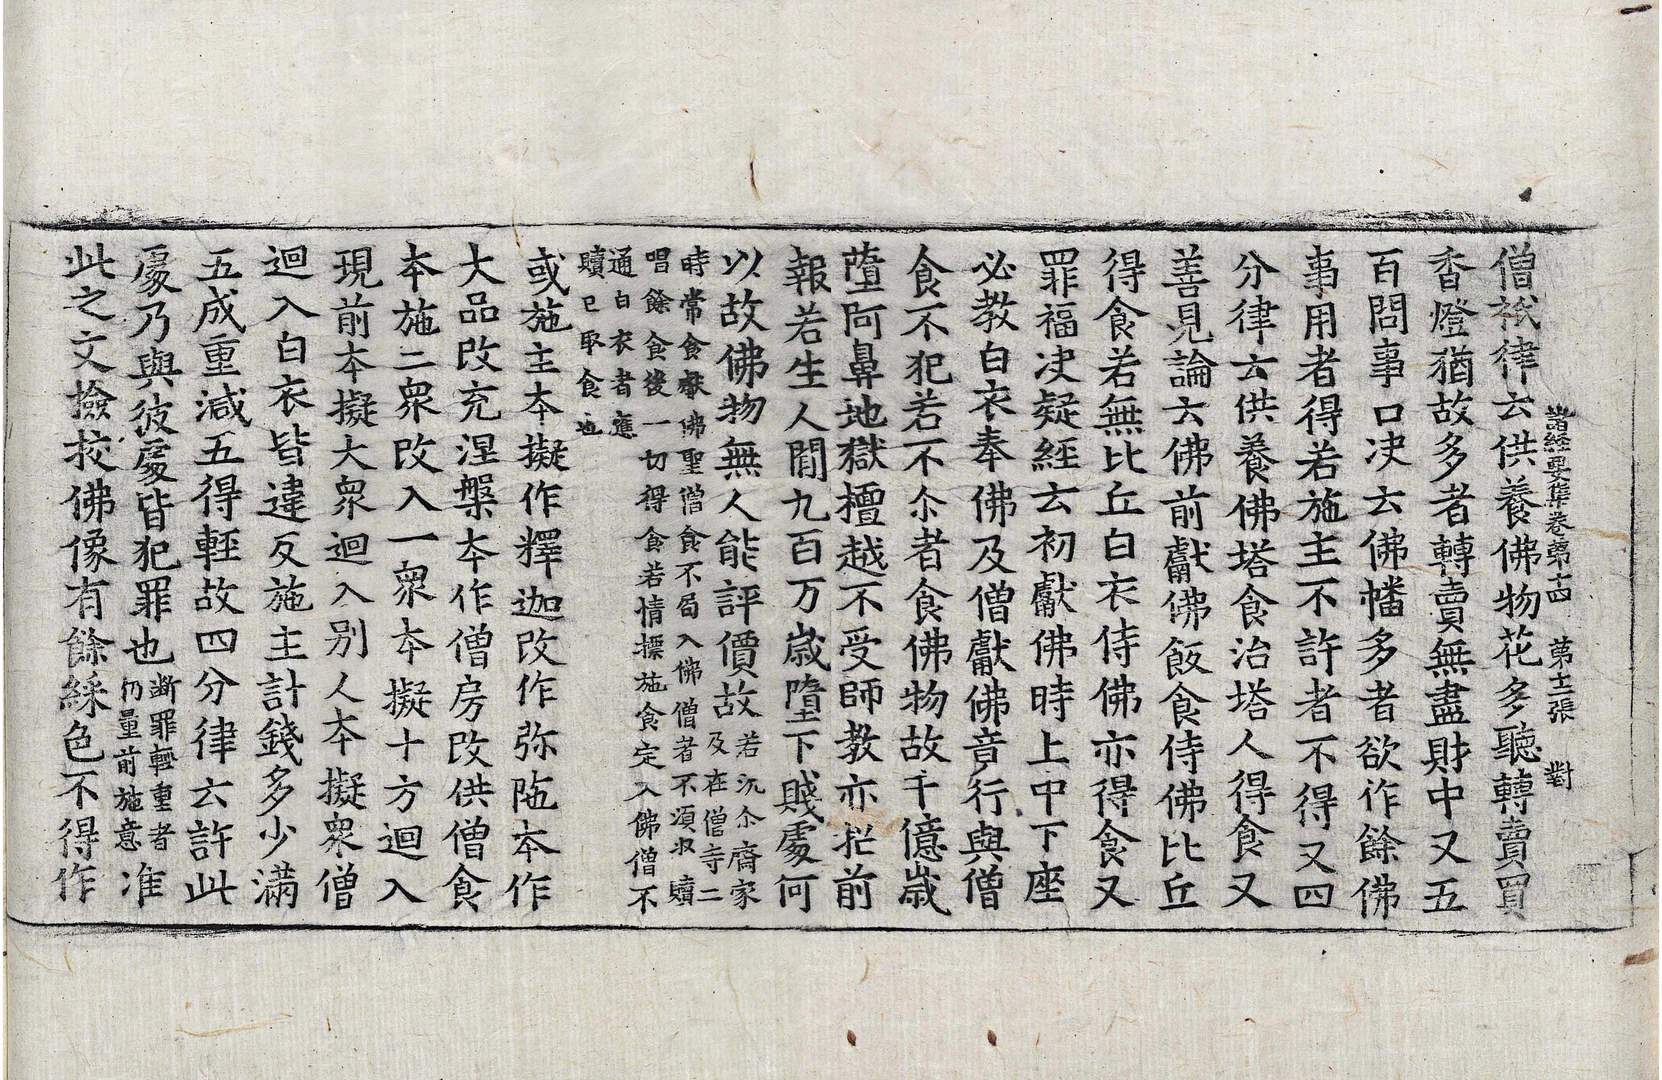 諸經要集卷第十四　第十二張　對
僧祇律云供養佛物花多聽轉賣買
香燈猶故多者轉賣無盡財中又五
百問事口决云佛幡多者欲作餘佛
事用者得若施主不許者不得又四
分律云供養佛塔食治塔人得食又
善見論云佛前獻佛飯食侍佛比丘
得食若無比丘白衣侍佛亦得食又
罪福决疑經云初獻佛時上中下座
必教白衣奉佛及僧獻佛音行與僧
食不犯若不尒者食佛物故千億歲
墮阿鼻地獄檀越不受師教亦招前
報若生人間九百万歲墮下賤處何
以故佛物無人能評價故若汎尒齋家及在僧寺二
時常食獻佛聖僧食不局入佛僧者不須收贖
唱餘食後一切得食若情標施食定入佛僧不
通白衣者應
贖已取食也
或施主本擬作釋迦改作弥陁本作
大品改充涅槃本作僧房改供僧食
本施二衆改入一衆本擬十方迴入
現前本擬大衆迴入別人本擬衆僧
迴入白衣皆違反施主計錢多少滿
五成重減五得輕故四分律云許此
處乃與彼處皆犯罪也断罪輕重者仍量前施意准
此之文撿挍佛像有餘綵色不得作